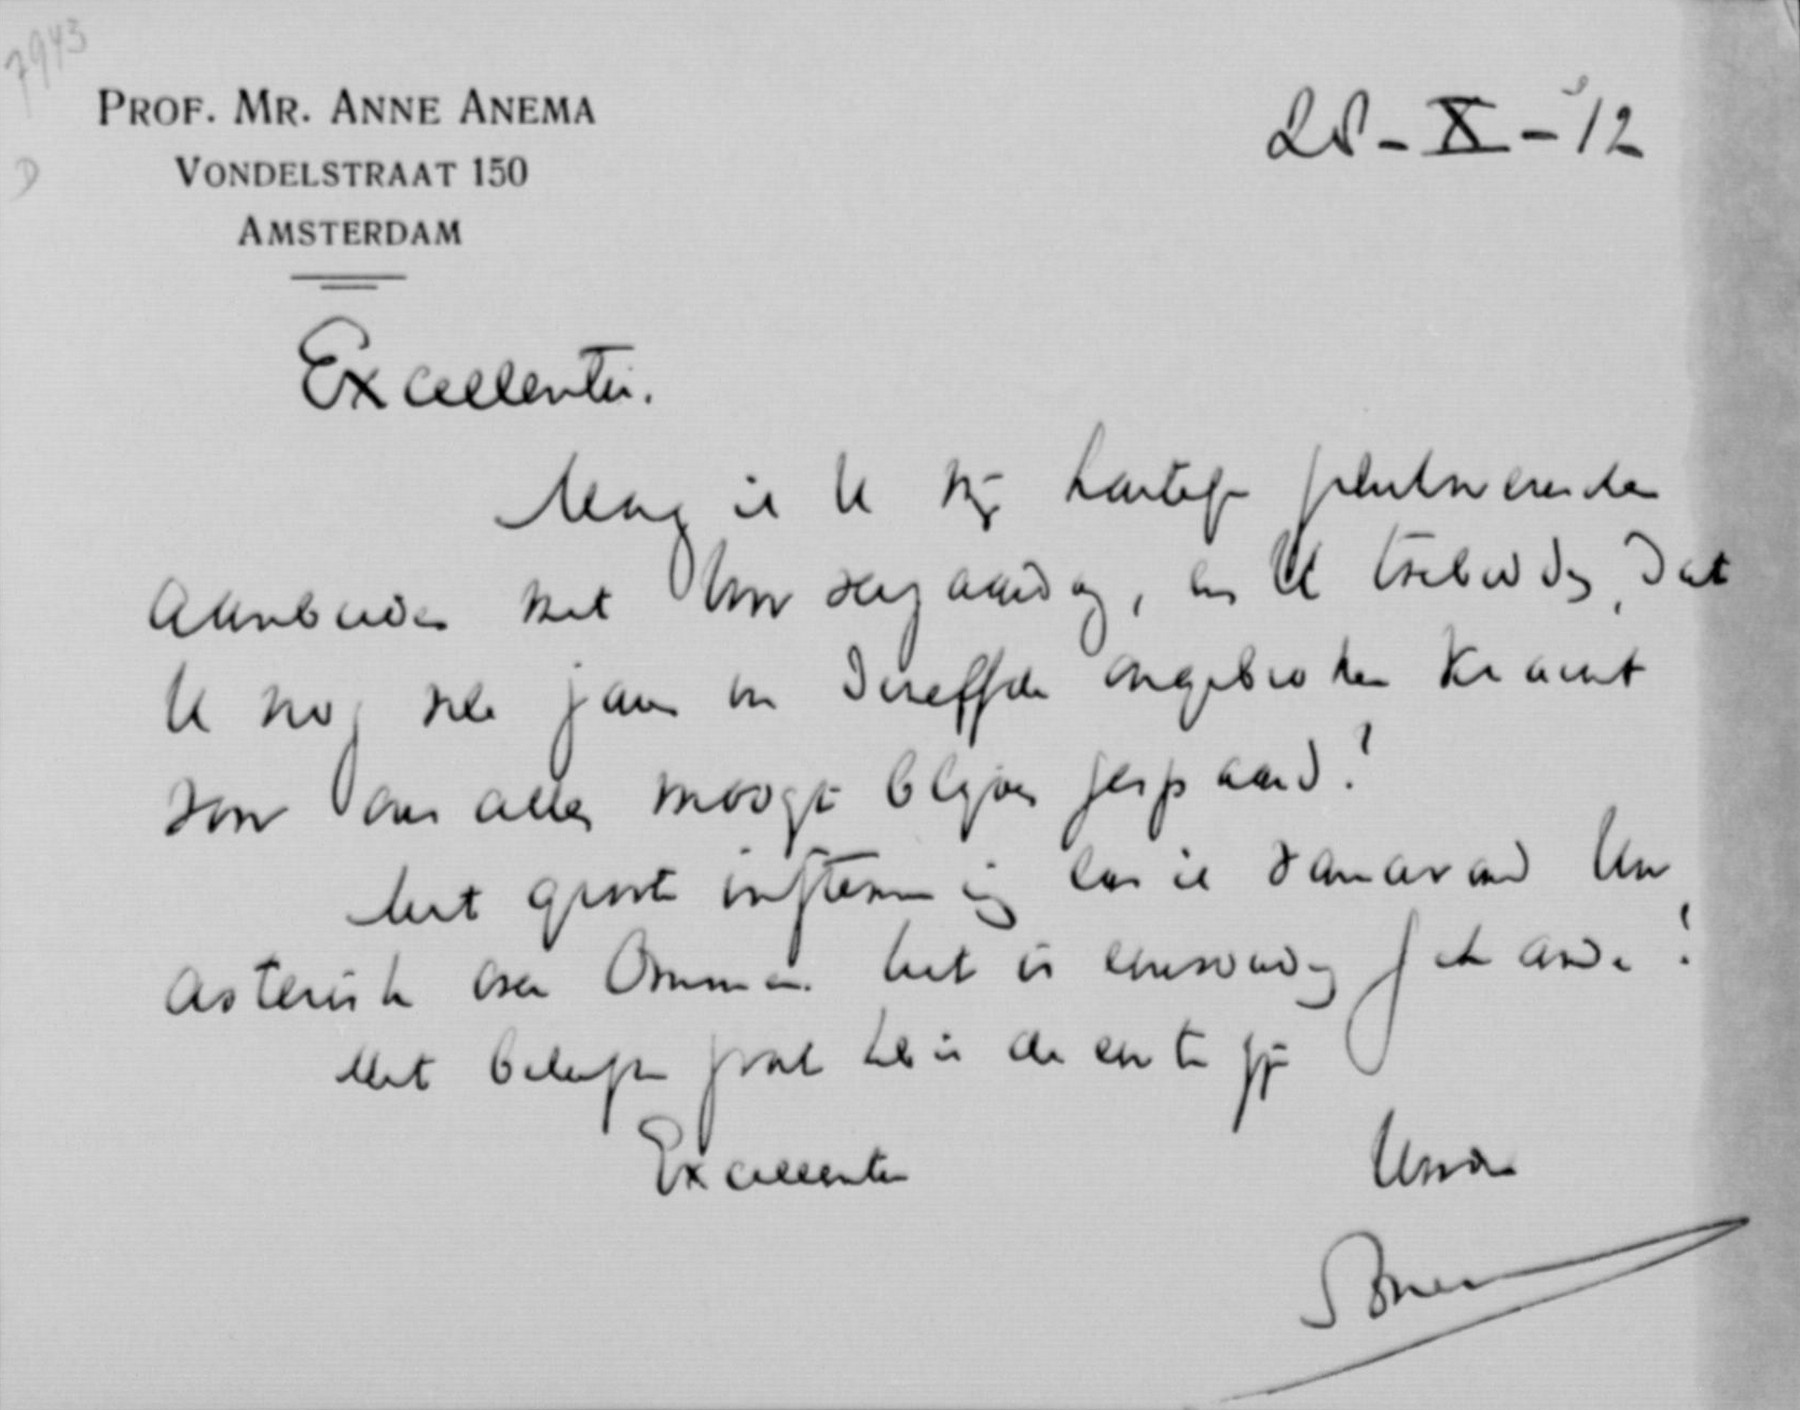 7943
D
PROF. MR. ANNE ANEMA
VONDELSTRAAT 150
AMSTERDAM
28-X-'12
Excellentie.
Mag ik U mijn hartelijke gelukwenschen
aanbieden met Uw verjaardag, en U toebidden, dat
U nog vele jaren in dezelfde ongebroken kracht
voor ons allen moogt blijven gespaard!
Met groote instemming las ik vanavond Uw
asterisk over Ommen. Het is eenvoudig schande!
Met beleefde groet
Excellentie
Uwen
Anema